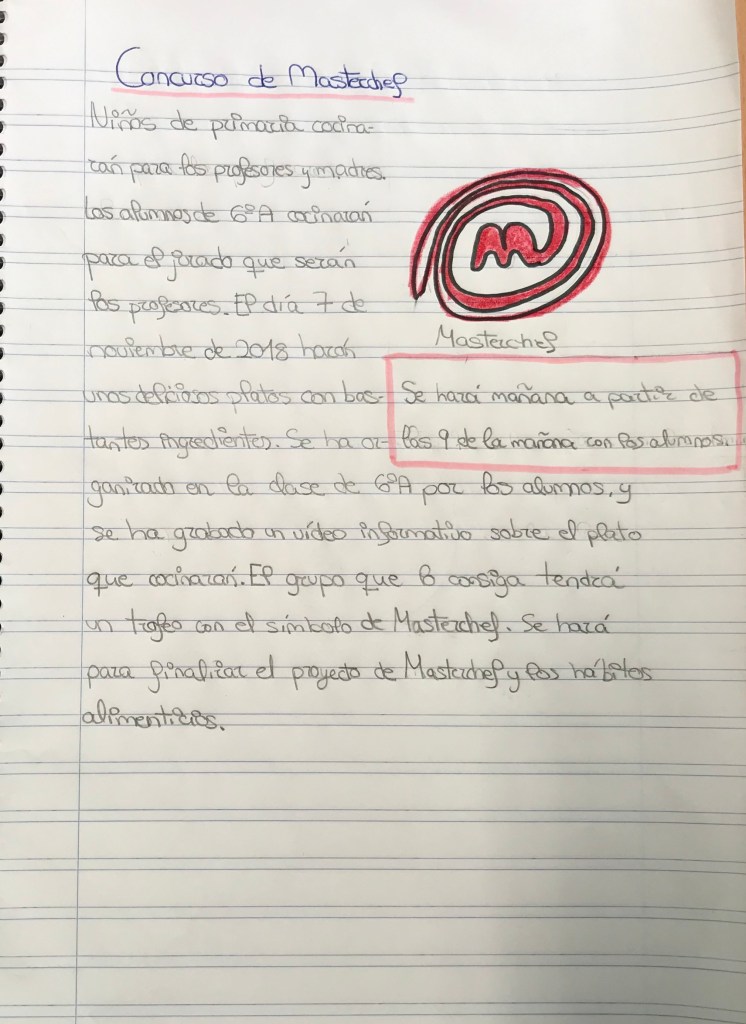 Concurso de Masterchef
Niños de primaria cocina-
rán para los profesores y madres.
Los alumnos de 6ºA cocinarán
para el jurado que serán
los profesores. El día 7 de
noviembre de 2018 harán
unos deliciosos platos con bas-
tantes ingredientes. Se ha or-
ganizado en la clase de 6ºA por los alumnos, y
se ha grabado un vídeo informativo sobre el plato
que cocinarán. El grupo que lo consiga tendrá
un trofeo con el símbolo de Masterchef. Se hará
para finalizar el proyecto de Masterchef y los hábitos
alimenticios.
m
Masterchef
Se hará mañana a partir de
las 9 de la mañana con los alumnos.